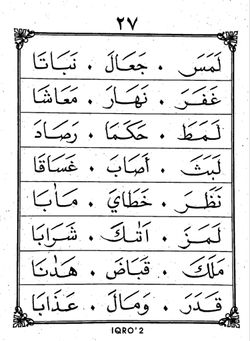 ٢٧
لَمَسَ . جَعَالَ . نَبَاتَا
غَفَرَ . نَهَارَ . مَعَاشَا
لَمَطَ . حَكَمَا . رَصَادَ
لَبَثَ . أَصَابَ . غَسَاقَا
نَظَرَ . خَطَايَ . مَاٰبَا
لَمَزَ . اَتٰكَ . شَرَابَا
مَلَكَ . قَبَاضَ . هٰذَنَا
قَدَرَ . وَمَالَ . عَذَابَا
IQRO'2